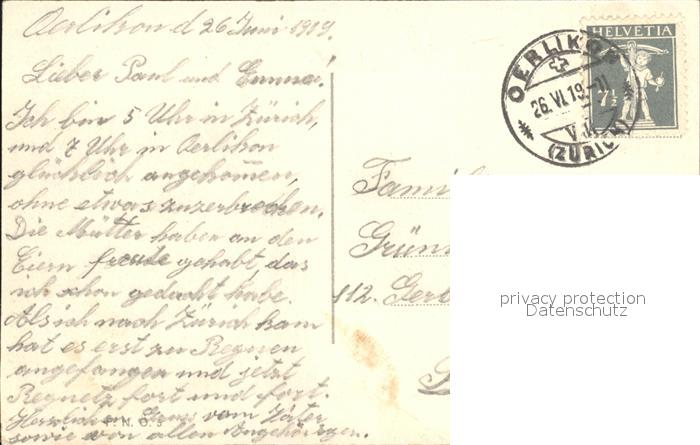 Oerlikon d 26 Juni 1919.
Lieber Paul und Emma!
Ich bin 5 Uhr in Zürich,
und 7 Uhr in Oerlikon
glücklich angekommen,
ohne etwas zuzerbrechen.
Die Mütter haben an den
Eiern freude gehabt, das
ich schon gedacht habe.
Als ich nach Zürich kam
hat es erst zu Regnen
angefangen und jetzt
Regnetz fort und fort.
Herzlichen Gruss vom Väter
sowie von allen Angehörigen.
P. N. O. S
HELVETIA
7½
OERLIKON
26. VI. 19.
(ZÜRICH)
Famil
Grün
112. Gerb
privacy protection
Datenschutz